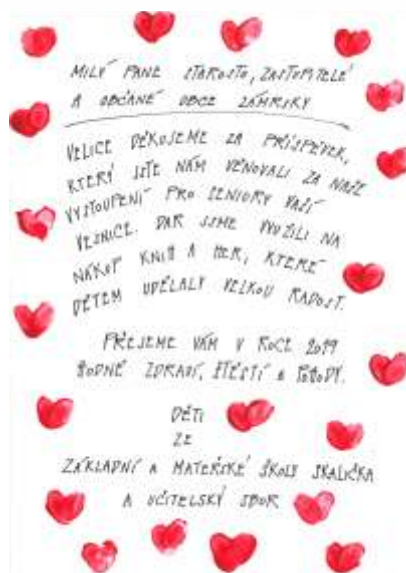 MILÝ PANE STAROSTO, ZASTUPITELÉ
A OBČANÉ OBCE ZÁMRSKY
VELICE DĚKUJEME ZA PŘÍSPĚVEK,
KTERÝ JSTE NÁM VĚNOVALI ZA NAŠE
VYSTOUPENÍ PRO SENIORY VAŠÍ
VESNICE. DAR JSME VYUŽILI NA
NÁKUP KNIH A HER, KTERÉ
DĚTEM UDĚLALY VELKOU RADOST.
PŘEJEME VÁM V ROCE 2019
HODNĚ ZDRAVÍ, ŠTĚSTÍ A POHODY.
DĚTI
ZE
ZÁKLADNÍ A MATEŘSKÉ ŠKOLY SKALIČKA
A UČITELSKÝ SBOR